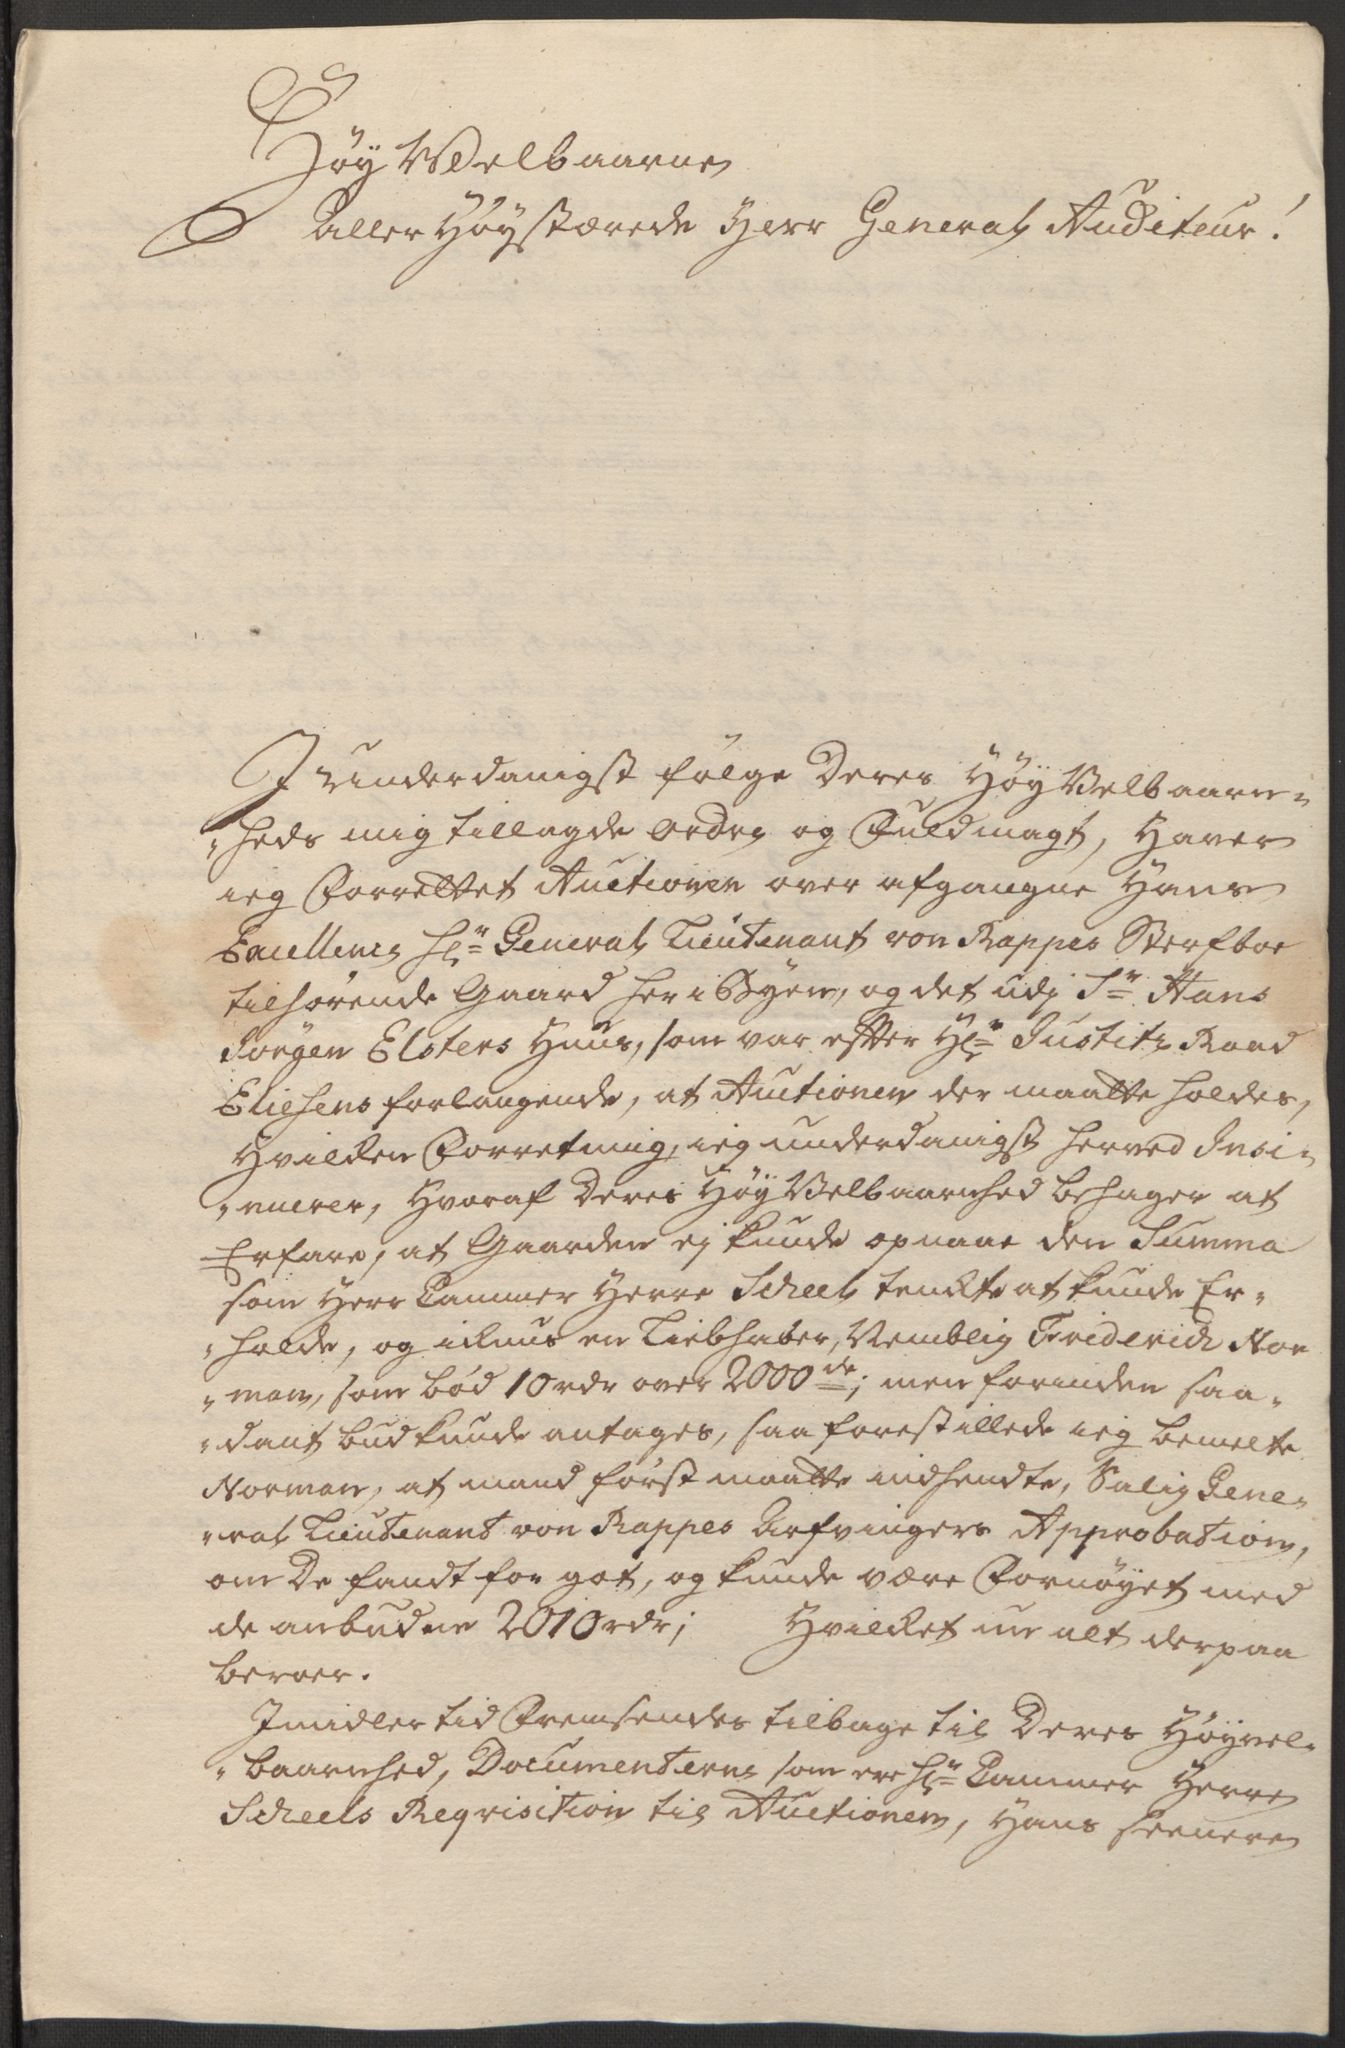 Høy Welbaarne
Aller Høystærede Herr General Auditeur!
I underdanigst følge Deres Høy Velbaaren-
-heds mig tillagde ordre og Fuldmagt, Haver
ieg Forrettet Auctionen over afgangne Hans
Excellence Hr General Lieutenant von Rappes Sterfboe
tilhørende Gaard her i Byen, og det udj Sr Hans
Jørgen Elsters Huus, som var efter Hr Justitz Raad
Eliesens forlangende, at Auctionen der maatte holdes,
Hvilken Forretning, ieg underdanigst herved Insi-
-nuerer, Hvoraf Deres Høy Velbaarenhed behager at
Erfare, at Gaarden ej kunde opnaae den Summa
som Herr Cammer Herre Scheel tenkte at kunde Er-
-holde, og ickuns en Liebhaber, Nemblig Friderich Nor
-man, som bød 10 rdr over 2000de; men forinden saa-
-dant bud kunde antages, saa forestillede ieg bemelte
Norman, at mand først maatte indhendte, Salig Gene-
-ral Lieutenant von Rappes Arfvingers Approbation,
om De fandt for got, og kunde være Fornøyet med
de anbudne 2010 rdr; Hvilket nu alt derpaa
beroer.
Imidlertid Fremsendes tilbage til Deres Høyvel-
-baarnhed, Documenterne som ere Hr Cammer Herre
Scheels Reqvisition til Auctionen, Hans seenere